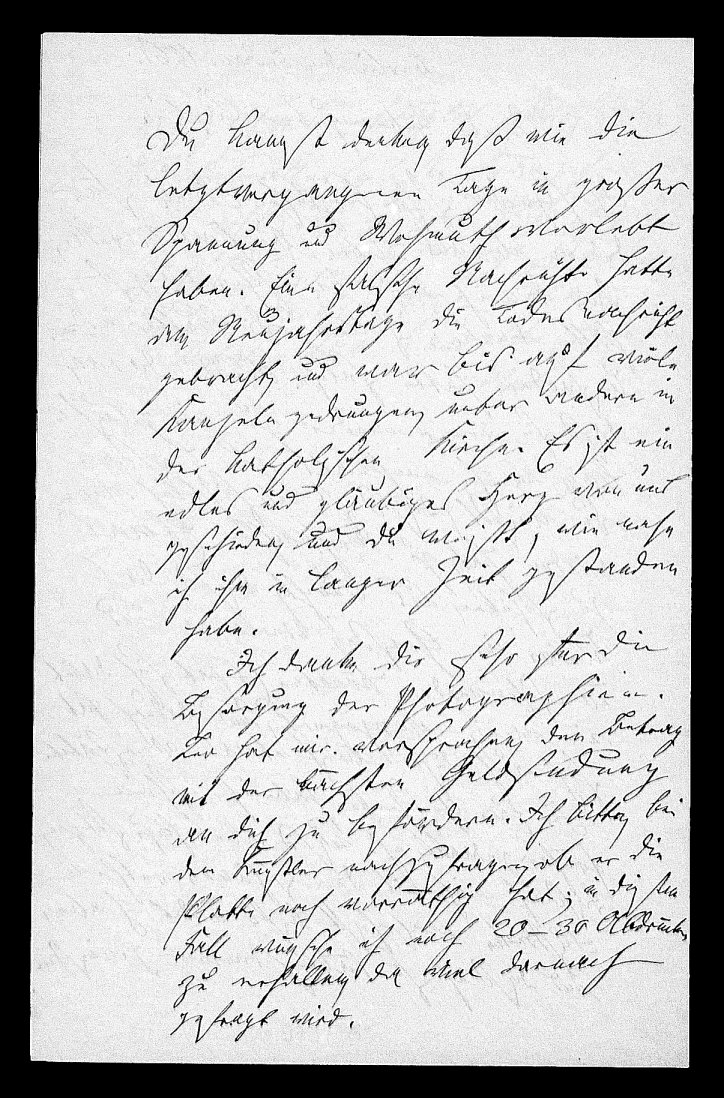 Du kannst denken, daß wir die
letztvergangenen Tage in großer
Spannung und Wehmuth verlebt
haben. Eine falsche Nachricht hatte
am Neujahrstage die Todesnachricht
gebracht, und war bis auf viele
Kanzeln gedrungen, unter andern in
der katholischen Kirche. Es ist ein
edles und gläubiges Herz von uns
geschieden, und du weißt, wie nahe
ich ihm in langer Zeit gestanden
habe.
Ich danke dir sehr für die
Besorgung der Photographien.
hat mir versprochen, den Betrag
mit der nächsten Geldsendung
an dich zu befördern. Ich bitte, bei
dem Künstler nachzufragen, ob er die
Platte noch vorräthig hat; in diesem
Fall wünsche ich noch 20–30 Abdrücke
zu erhalten, da viel darnach
gefragt wird.